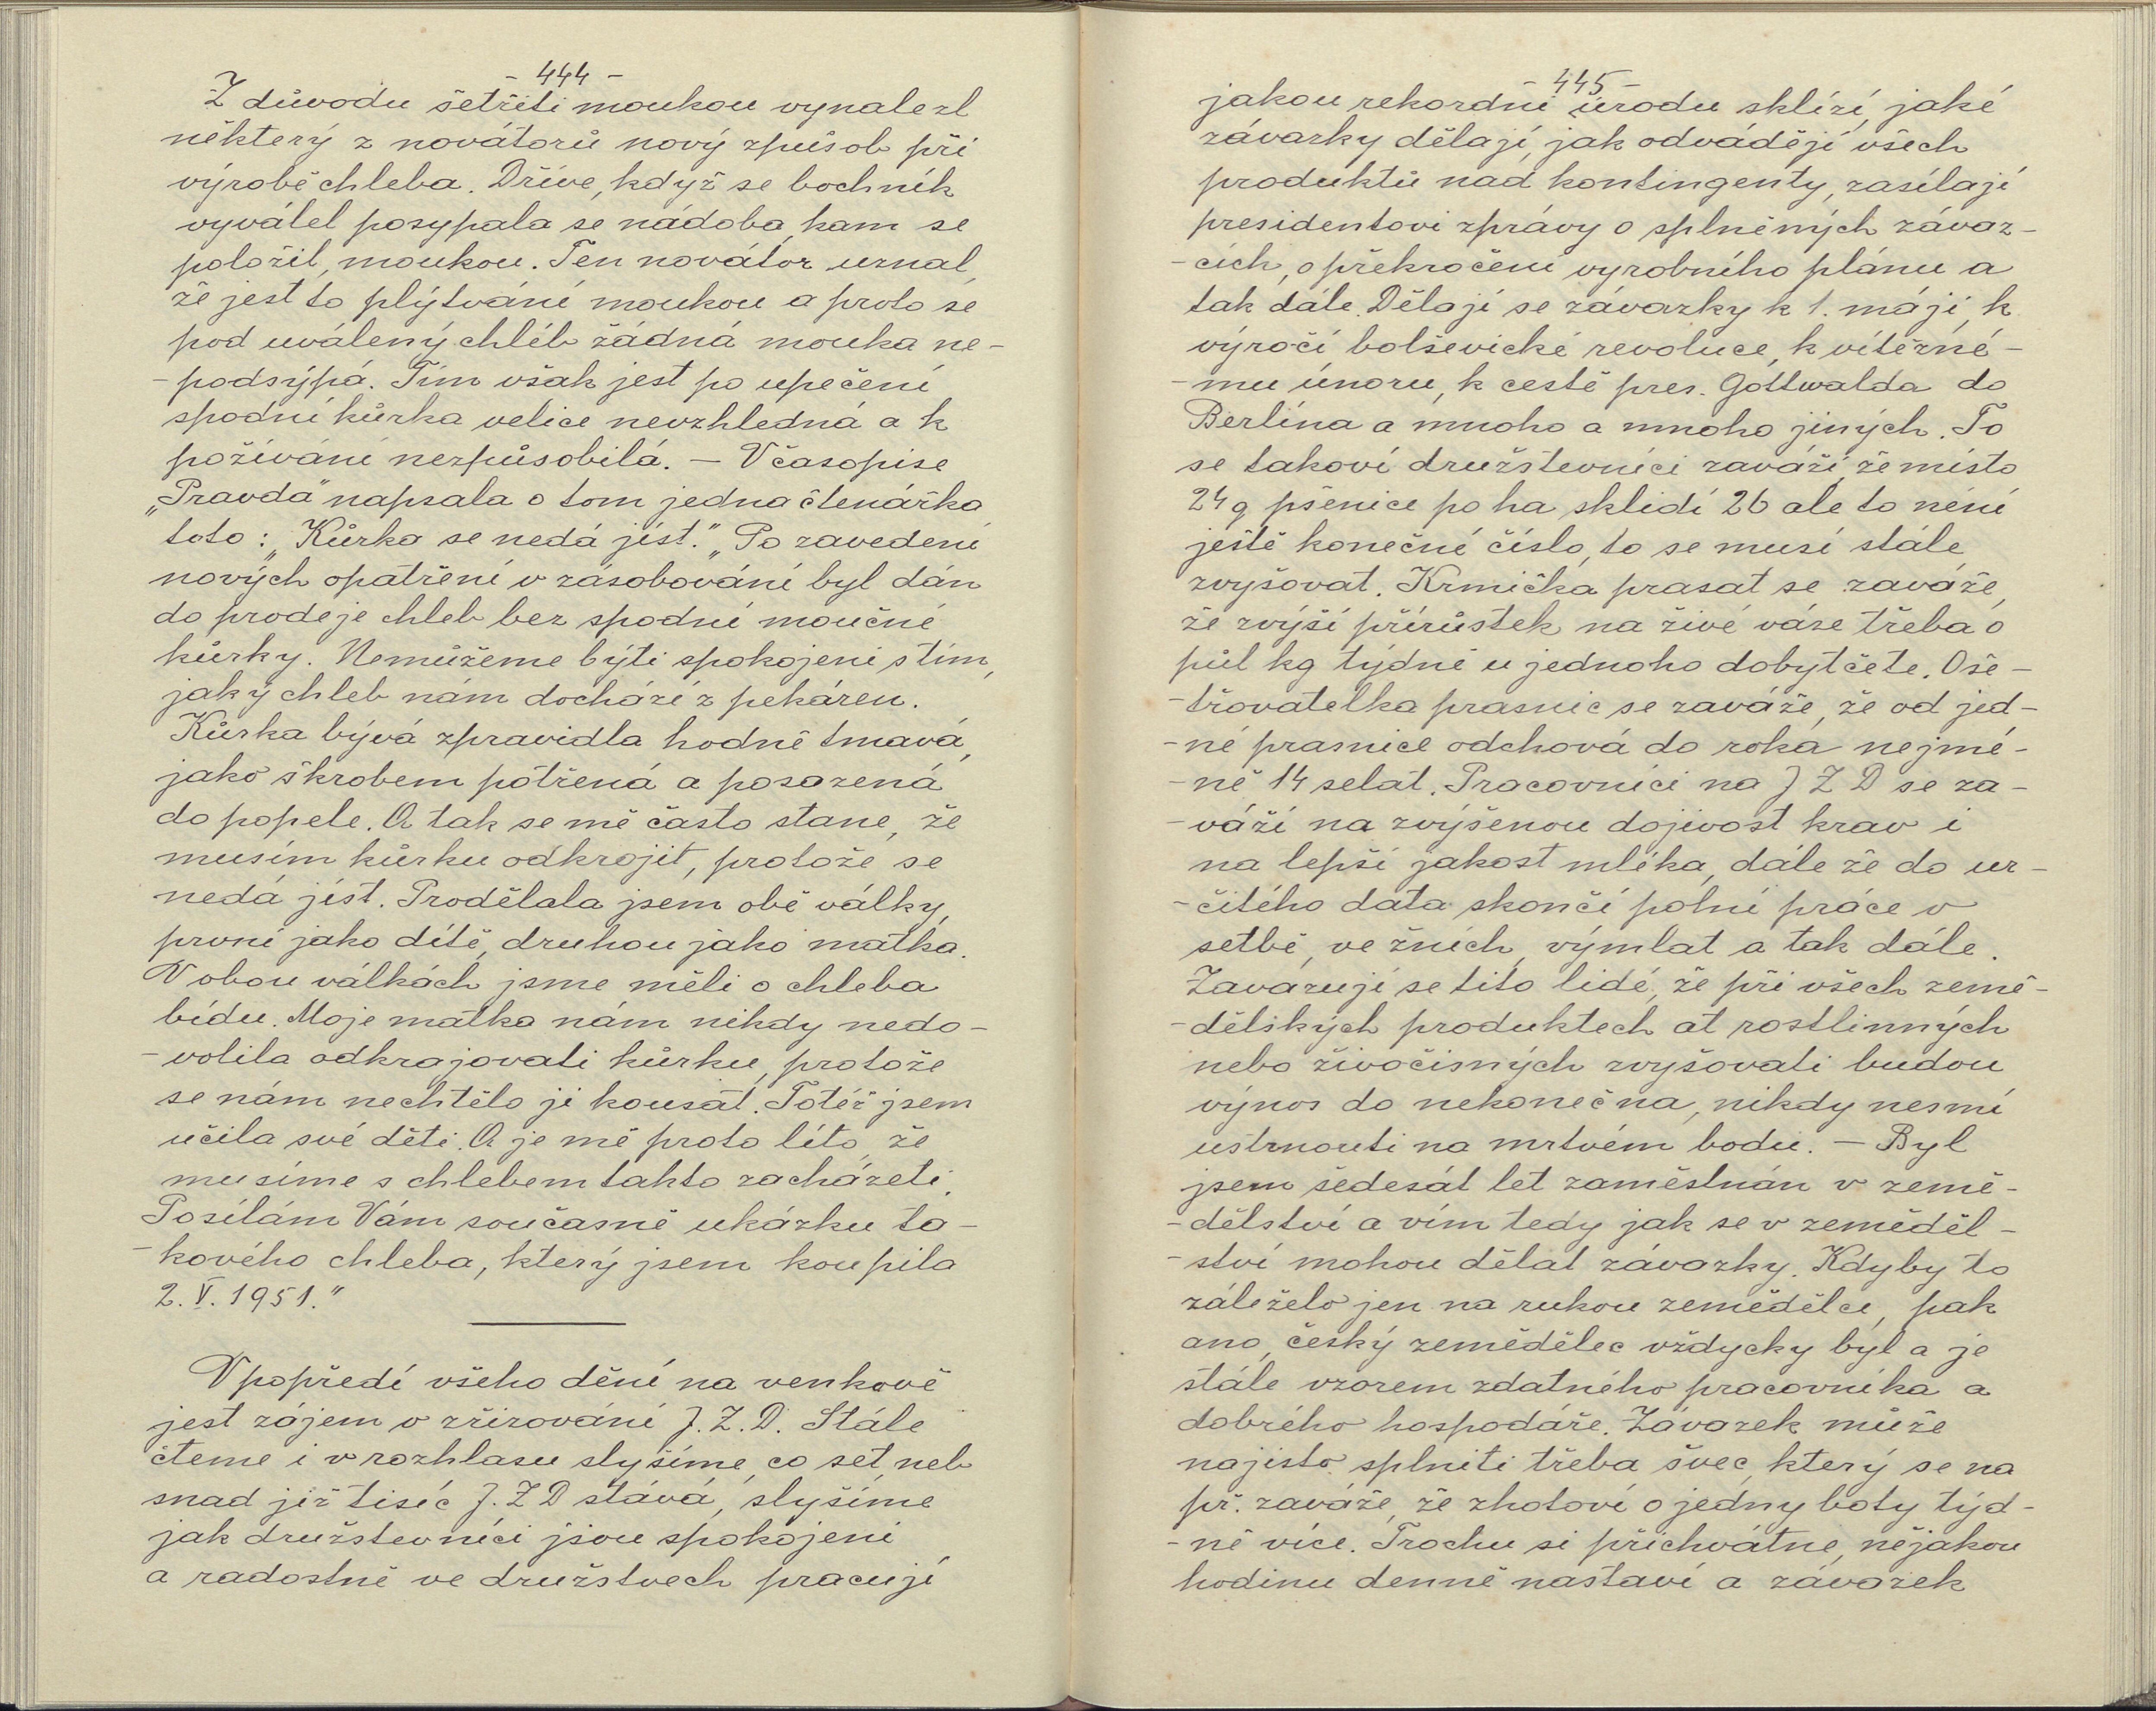 - 444 -
Z důvodu šetřiti moukou vynalezl
některý z novátorů nový způsob při
výrobě chleba. Dříve, když se bochník
vyválel posypala se nádoba, kam se
položil, moukou. Ten novátor uznal,
že jest to plýtvání moukou a proto se
pod uválený chléb žádná mouka ne-
-podsýpá. Tím však jest po upečení
spodní kůrka velice nevzhledná a k
požívání nezpůsobilá. — V časopise
„Pravda" napsala o tom jedna čtenářka
toto: „Kůrka se nedá jíst." „Po zavedení
nových opatření v zásobování byl dán
do prodeje chleb bez spodní moučné
kůrky. Nemůžeme býti spokojeni s tím,
jaký chleb nám dochází z pekáren.
Kůrka bývá zpravidla hodně tmavá,
jako škrobem potřená a posazená
do popele. A tak se mě často stane, že
musím kůrku odkrojit, protože se
nedá jíst. Prodělala jsem obě války,
první jako dítě, druhou jako matka.
V obou válkách jsme měli o chleba
bídu. Moje matka nám nikdy nedo-
-volila odkrajovati kůrku, protože
se nám nechtělo ji kousat. Totéž jsem
učila své děti. A je mě proto líto, že
musíme s chlebem takto zacházeti.
Posílám Vám současně ukázku ta-
-kového chleba, který jsem koupila
2. V. 1951."
V popředí všeho dění na venkově
jest zájem o zřizování J.Z.D. Stále
čteme i v rozhlasu slyšíme, co set, neb
snad již tisíc J.Z D stává, slyšíme
jak družstevníci jsou spokojeni
a radostně ve družstvech pracují
- 445 -
jakou rekordní úrodu sklízí, jaké
závazky dělají, jak odvádějí všech
produktů nad kontingenty, zasílají
presidentovi zprávy o splněných závaz-
-cích, o překročení vyrobního plánu a
tak dále. Dělají se závazky k 1. máji, k
výročí bolševické revoluce, k vítězné-
-mu únoru, k cestě pres. Gottwalda do
Berlína a mnoho a mnoho jiných. To
se takoví družstevníci zaváží, že místo
24 q pšenice po ha sklidí 26 ale to není
ještě konečné číslo, to se musí stále
zvyšovat. Krmička prasat se zaváže,
že zvýší přírůstek na živé váze třeba o
půl kg týdně u jednoho dobytčete. Oše-
-třovatelka prasnic se zaváže, že od jed-
-né prasnice odchová do roka nejmé-
-ně 14 selat. Pracovníci na J Z D se za-
-váží na zvýšenou dojivost krav i
na lepší jakost mléka, dále že do ur-
-čitého data skončí polní práce v
setbě, ve žních, výmlat a tak dále.
Zavazují se tito lidé, že při všech země-
-dělských produktech at rostlinných
nebo živočisných zvyšovati budou
výnos do nekonečna, nikdy nesmí
ustrnouti na mrtvém bodu. — Byl
jsem šedesát let zaměstnán v země-
-dělství a vím tedy jak se v zeměděl-
-ství mohou dělat závazky. Kdyby to
záleželo jen na rukou zemědělce, pak
ano, český zemědělec vždycky byl a je
stále vzorem zdatného pracovníka a
dobrého hospodáře. Závazek může
najisto splniti třeba švec, který se na
př. zaváže, že zhotoví o jedny boty týd-
-ně více. Trochu si přichvátne, nějakou
hodinu denně nastaví a závazek